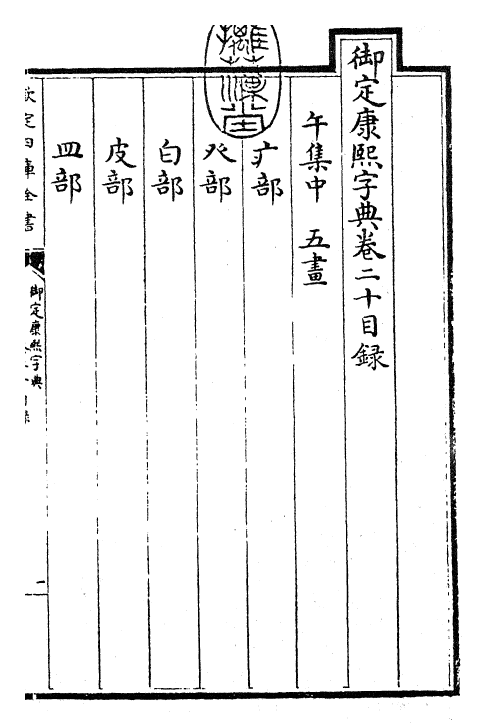 御定康熙字典卷二十目録
午集中　五畫
疒部
癶部
白部
皮部
皿部
欽定四庫全書
御定康熙字典